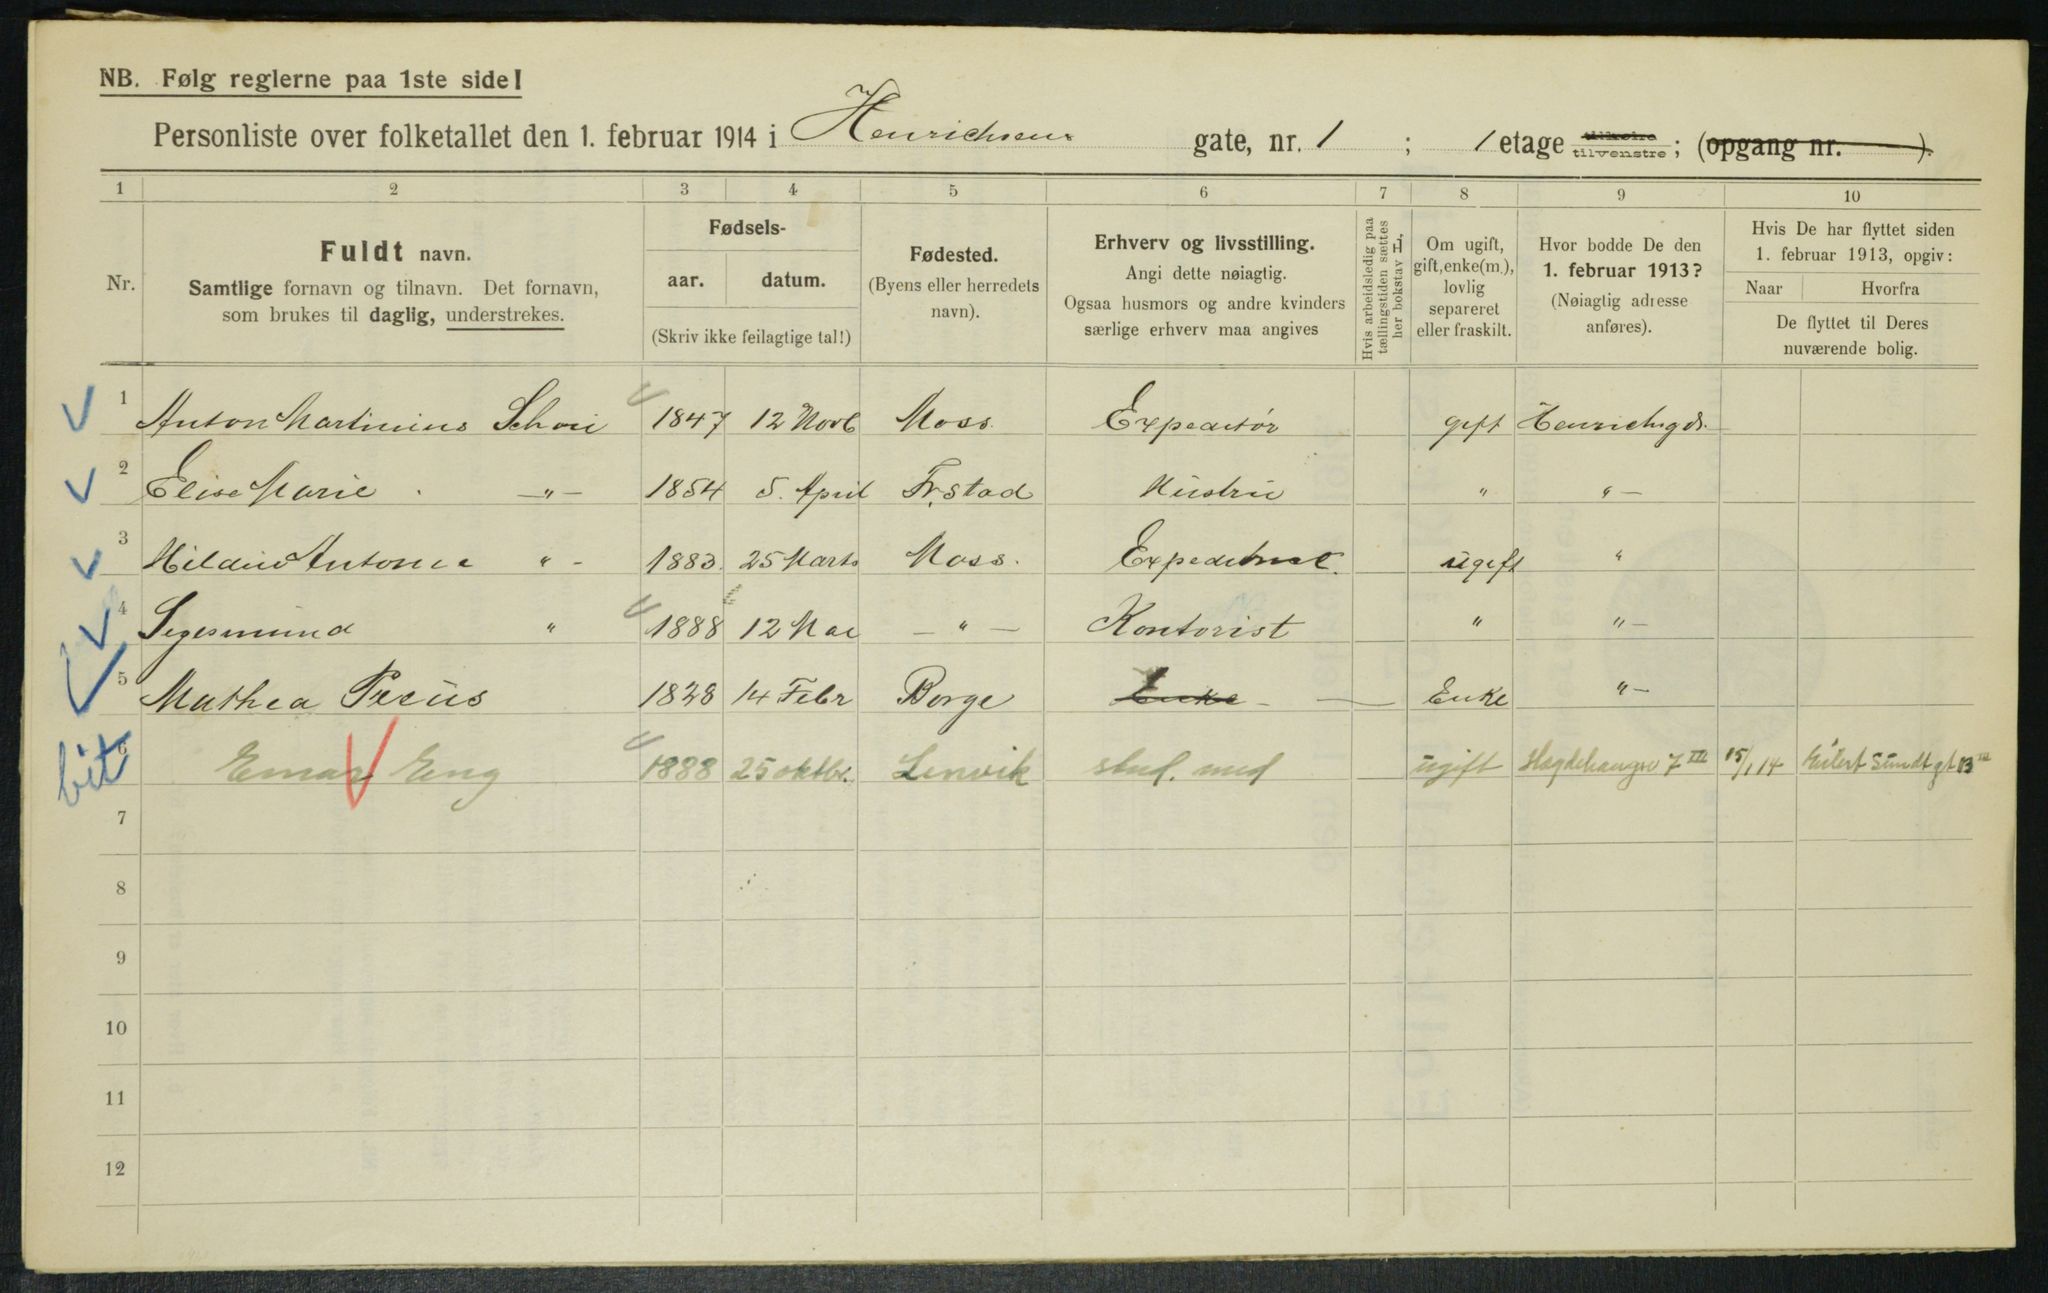 NB. Følg reglerne paa 1ste side!
Personliste over folketallet den 1. februar 1914 i Henrichsens gate, nr. 1 ; 1 etage tilhøire tilvenstre; (opgang nr. ).
1 2 3 4 5 6 7 8 9 10
Nr.
Fuldt navn.
Samtlige fornavn og tilnavn. Det fornavn,
som brukes til daglig, understrekes.
Fødsels-
aar. datum.
(Skriv ikke feilagtige tal!)
Fødested.
(Byens eller herredets
navn).
Erhverv og livsstilling.
Angi dette nøiagtig.
Ogsaa husmors og andre kvinders
særlige erhverv maa angives
Hvis arbeidsledig paa
tællingstiden sættes
her bokstav H,
Om ugift,
gift, enke(m.),
lovlig
separeret
eller fraskilt.
Hvor bodde De den
1. februar 1913?
(Nøiagtig adresse
anføres).
Hvis De har flyttet siden
1. februar 1913, opgiv:
Naar Hvorfra
De flyttet til Deres
nuværende bolig.
1 Anton Martinius Schou 1847 12 Novb Moss. Expeditör gift Henrichsgds.
2 Elise Marie -"- 1854 5. April Fr.stad Hustru " "-
3 Antonie " - 1883. 25 Marts Moss. ugift "
4 Sigesmund " 1888 12 Mai -"- Kontorist " "-
5 Mathea 1828 14 Febr Borge Enke - Enke "-
6 Einar Eng 1888 25 oktbr. Lenvik stud. med ugift Hægdehaugsv 7 III 15/1 14 Eilert Sundt gt 13 III
bit
7
8
9
10
11
12